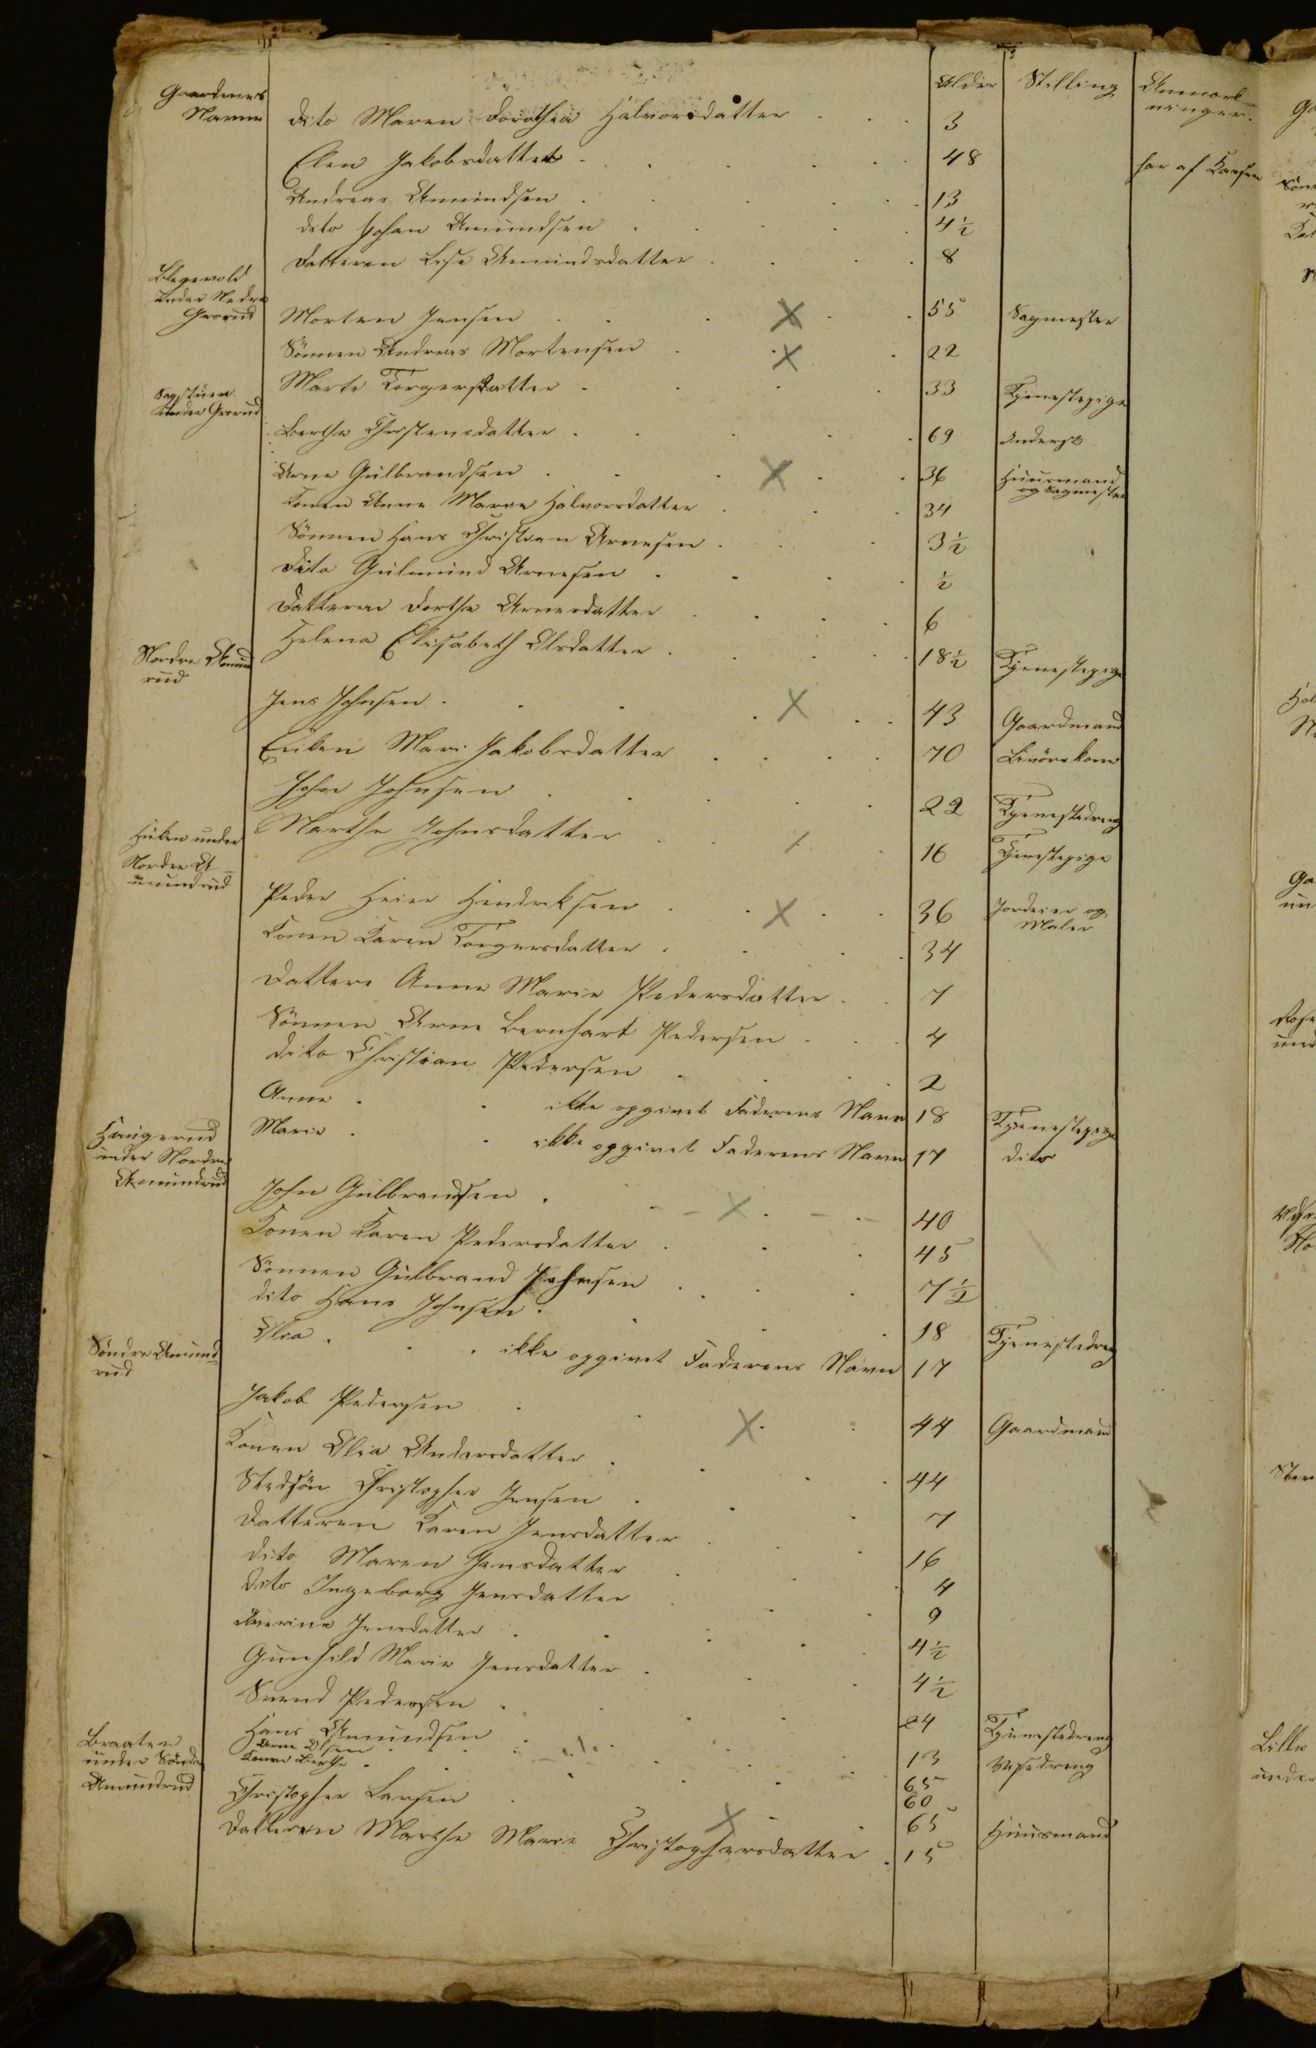 Gaardenes Navne Alder Stilling Anmærkninger.
dito Maren Dorothea Halvorsdatter 3
Elen Jakobsdatter 48 har af Kassen
Andreas Amundsen 13
dito Johan Amundsen 4½
Datteren Lise Amundsdatter 8
under Nedre Grorud
Morten Jensen 55 Sagmester
Sönnen Andreas Mortensen 22
Marte Torgersdatter 33 Tjenestepige
Sagstuen under Grorud
Berthe Christensdatter 69 Inderst
Arne Gulbrandsen 36 Huusmand og Sagmester
Konen Anne Marie Halvorsdatter 34
Sönnen Hans Christian Arnesen 3½
dito Gulmund Arnesen ½
Datteren Dorthe Arnesdatter 6
Helena Elisabeth Olsdatter 18½ Tjenestepige
Nordre Amundrud
Jens Johnsen 43 Gaardmand
Enken Mari Jakobsdatter 70 Livörekone
John Johnsen 22 Tjenestedreng
Marthe Johnsdatter 16 Tjenestepige
Huken under Nordre Amundrud
Peder Heier Hendriksen 36 Jordeier og Maler
Konen Karen Torgersdatter 34
Dattere Anne Marie Pedersdatter 7
Sönnen Arne Bernhart Pedersen 4
dito Christian Pedersen 2
Anne ikke opgivet Faderens Navn 18 Tjenestepige
Marie ikke opgivet Faderens Navn 17 dito
Haugerud under Nordre Amundrud
John Gulbrandsen 40
Konen Karen Pedersdatter 45
Sönnen Gulbrand Johnsen 7½
dito Hans Johnsen 18 Tjenestedreng
Olea ikke opgivet Faderens Navn 17
Söndre Amundrud
Jakob Pedersen 44 Gaardmand
Konen Olea Andersdatter 44
Stedsön Christopher Jensen 7
Datteren Karen Jensdatter 16
dito Maren Jensdatter 4
dito Ingeborg Jensdatter 9
Jensdatter 4½
Gunhild Marie Jensdatter 4½
Svend Pedersen 24 Tjenestedreng
Hans Amundsen 13
Arne Olsen 65
Konen Berthe 60
Braaten under Söndre Amundrud
Christopher Larsen 65 Huusmand
Datteren Marthe Marie Christophersdatter 15